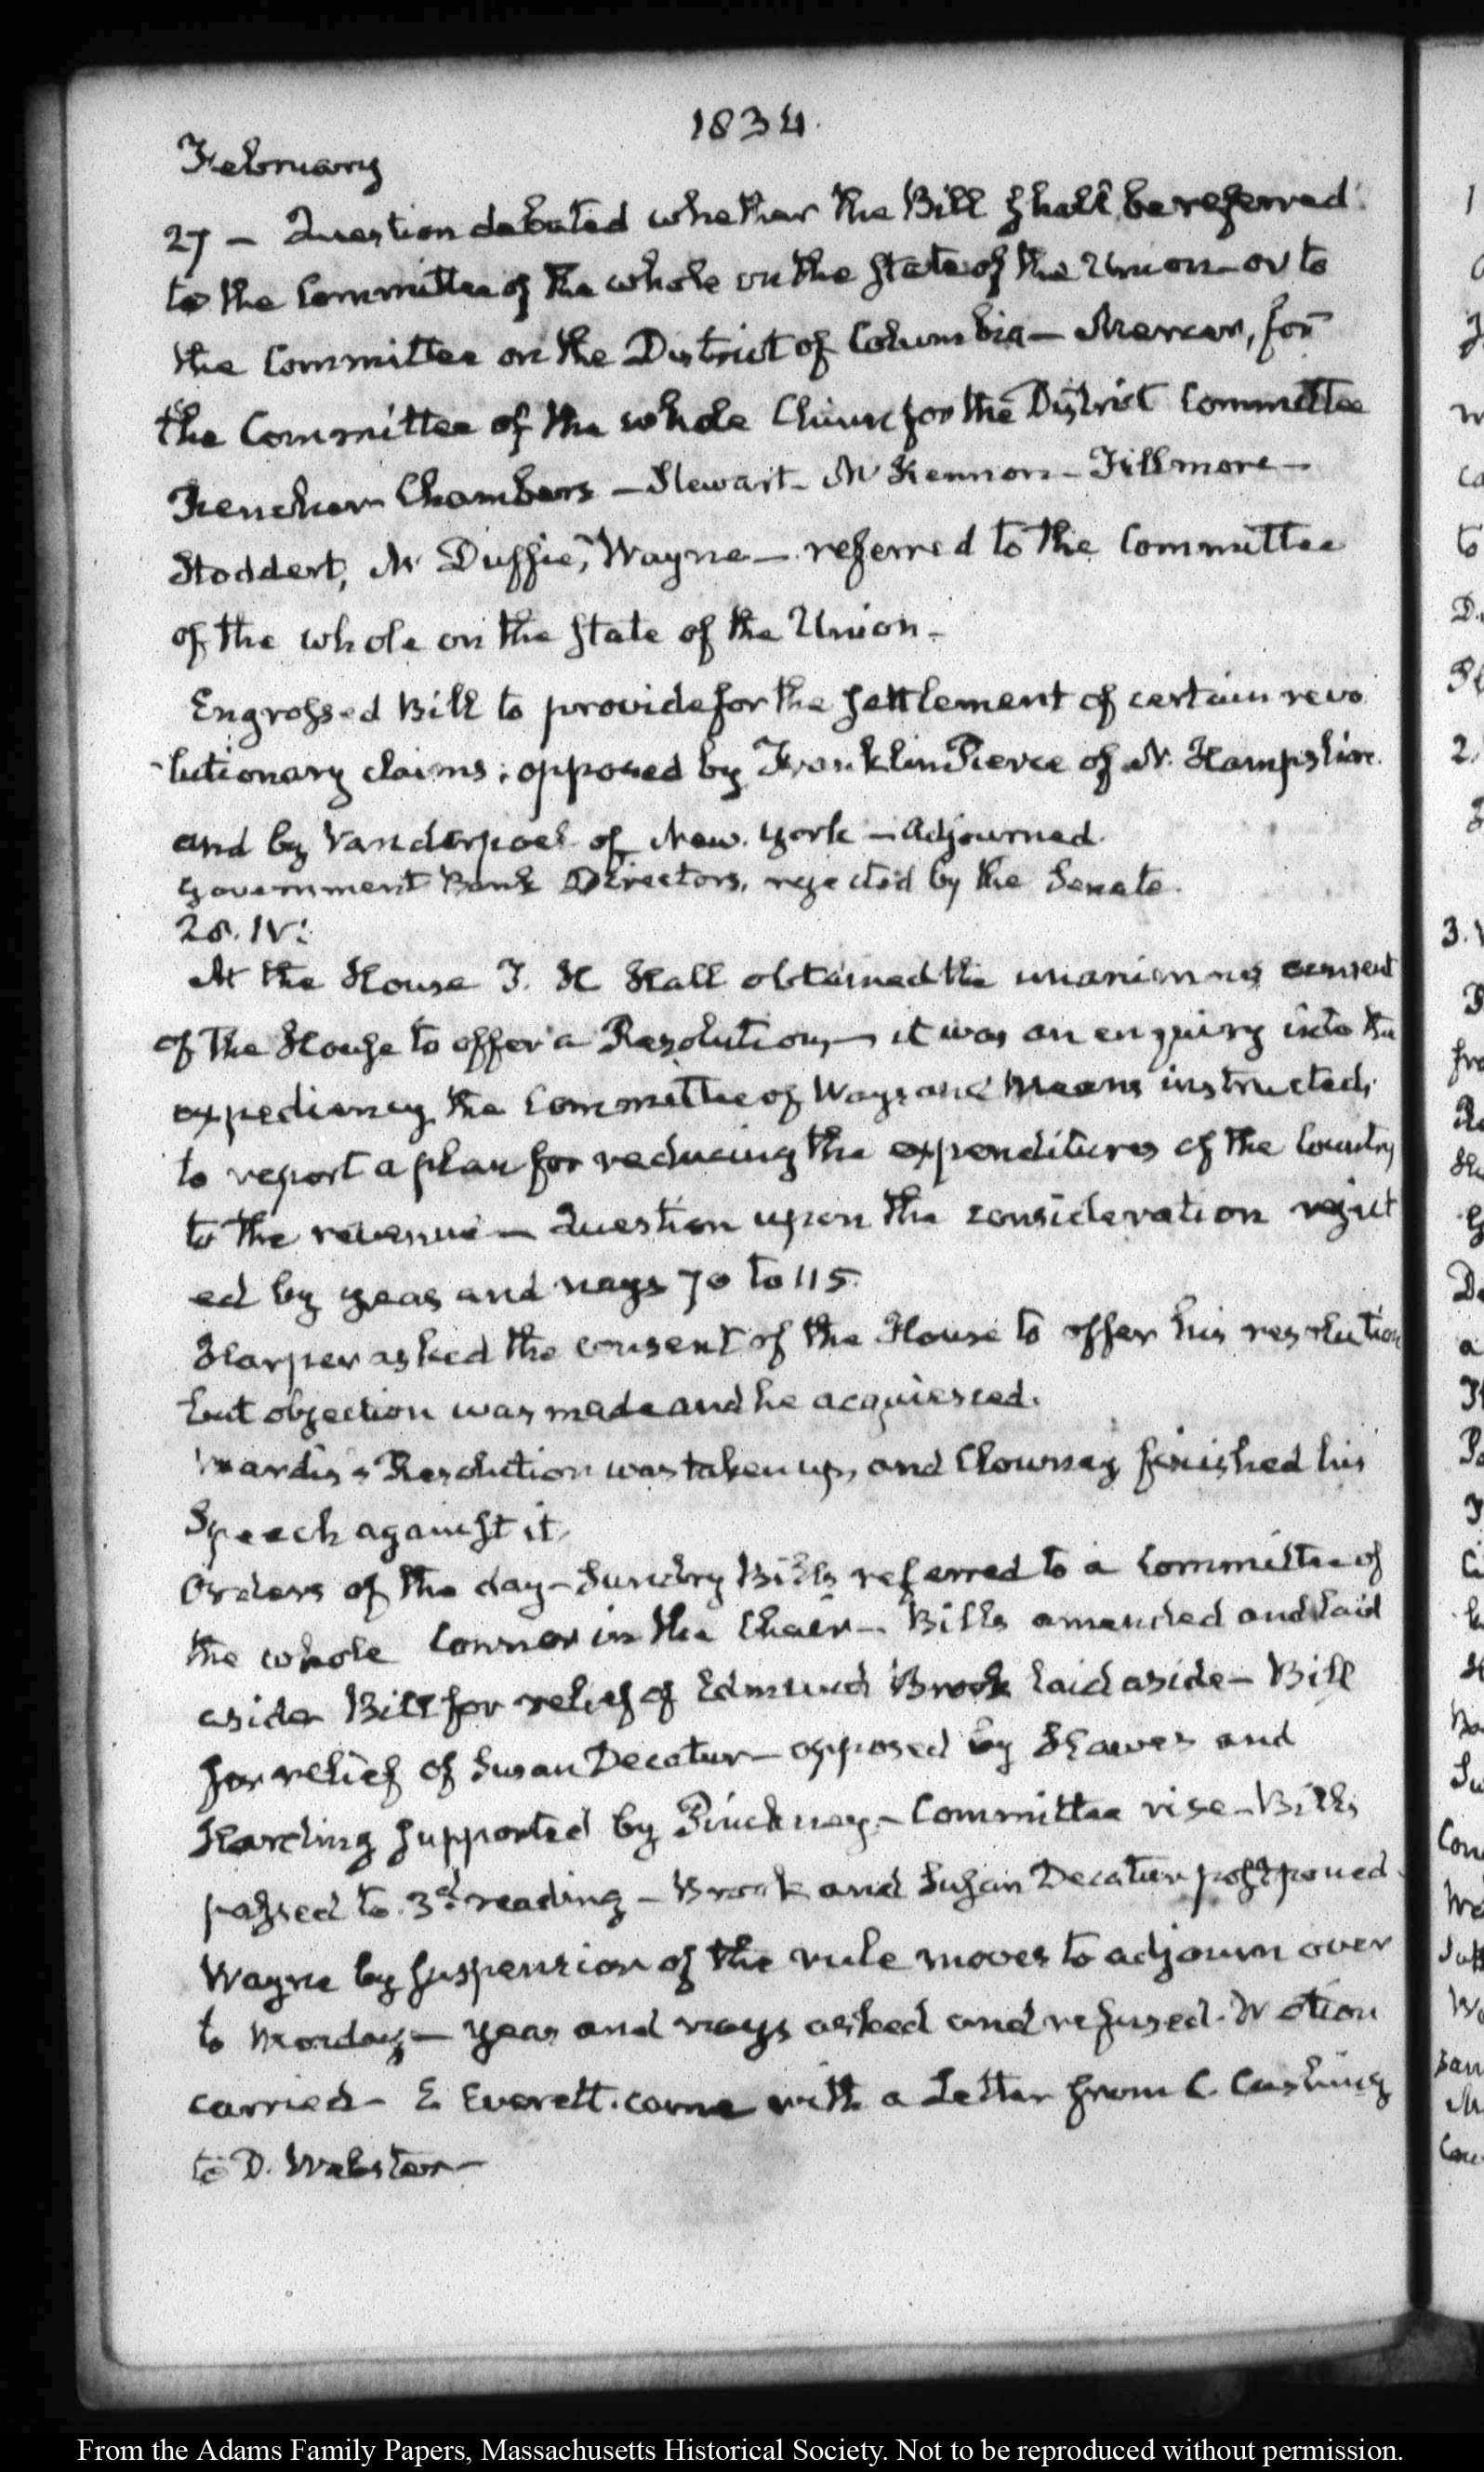 1834.
February
27 – Question debated whether the Bill shall be referred
to the Committee of the whole on the State of the Union – or to
the Committee on the District of Columbia – Mercer, for
the Committee of the whole Chinn for the District Committee
Rencher Chambers – Stewart – McKennon – Fillmore –
Stoddert, McDuffie, Wayne – referred to the Committee
of the whole on the State of the Union –
Engrossed Bill to provide for the settlement of certain revo
-lutionary claims; opposed by Franklin Pierce of N. Hampshire.
and by Vanderpoel of New York – Adjourned.
Government Bank Directors, rejected by the Senate.
28. IV:
At the House T. H Hall obtained the unanimous consent
of the House to offer a Resolution – it was an enquiry into the
expediency, the Committee of Ways and Means instructed,
to report a plan for reducing the expenditures of the Country
to the revenue – Question upon the consideration reject
ed by yeas and nays 70 to 115.
Harper asked the consent of the House to offer his resolution
but objection was made and he acquiesced.
Mardis's Resolution was taken up, and Clowney finished his
Speech against it.
Orders of the day – Sundry Bills referred to a Committee of
the whole Connor in the Chair – Bills amended and laid
aside – Bill for relief of Edmund Brook laid aside – Bill
for relief of Susan Decatur – opposed by Hawes and
Harding supported by Pinckney – Committee rise – Bills
passed to 3d. reading – Brook and Susan Decatur postponed.
Wayne by suspension of the rule moves to adjourn over
to Monday – yeas and nays asked and refused. Motion
carried – E. Everett came with a Letter from C. Cushing
to D. Webster –
From the Adams Family Papers, Massachusetts Historical Society. Not to be reproduced without permission.